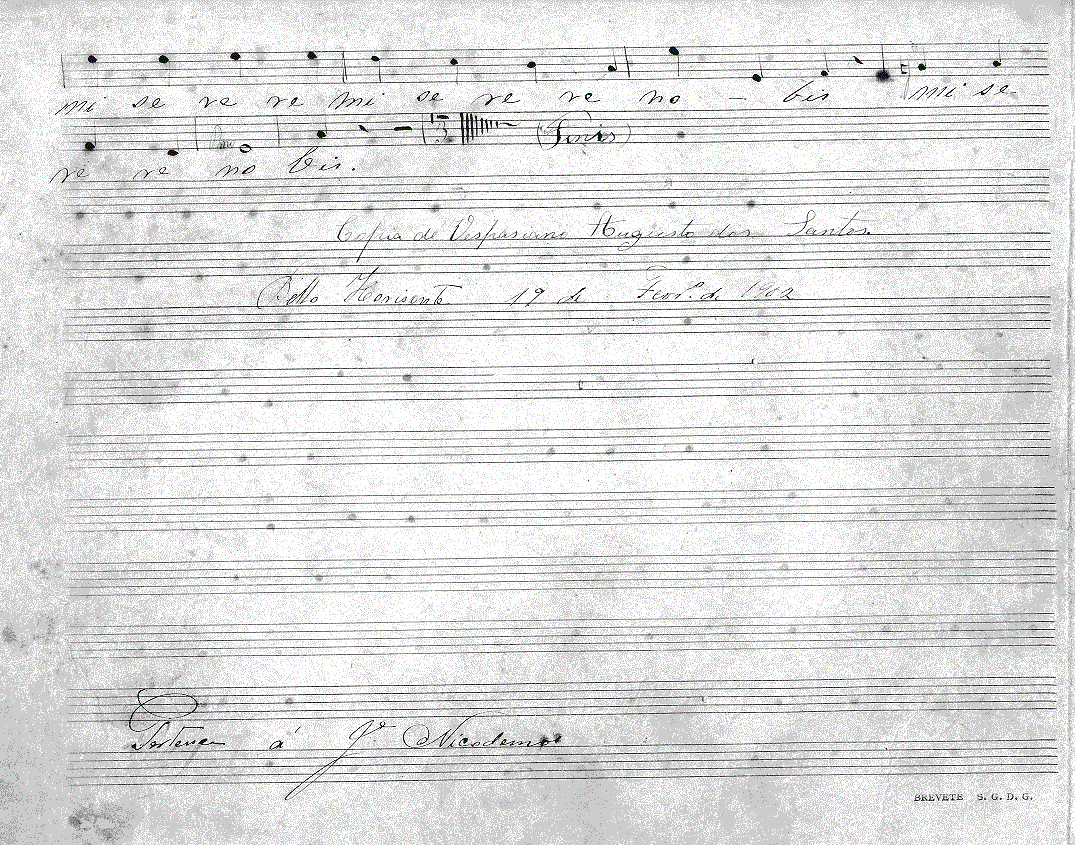 mi se re re mi se re re no – bis mi se-
re re no bis. (Finis)
Copia de Vespasiano Augusto dos Santos.
Bello Horisonte 19 de Fevr.º de 1902
Pertence á Jº Nicodemos
BREVETÉ S. G. D. G.